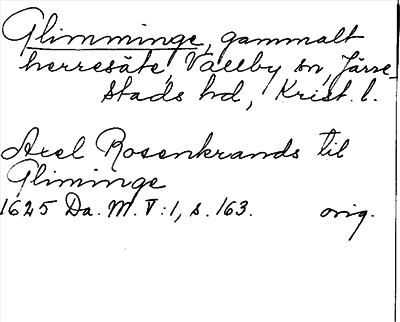 Glimminge, gammalt
herresäte, Vallby sn, Järre-
stads hd, Krist. l.
Axel Rosenkrands til
Gliminge
1625 Da. M. V:1, s. 163. orig.